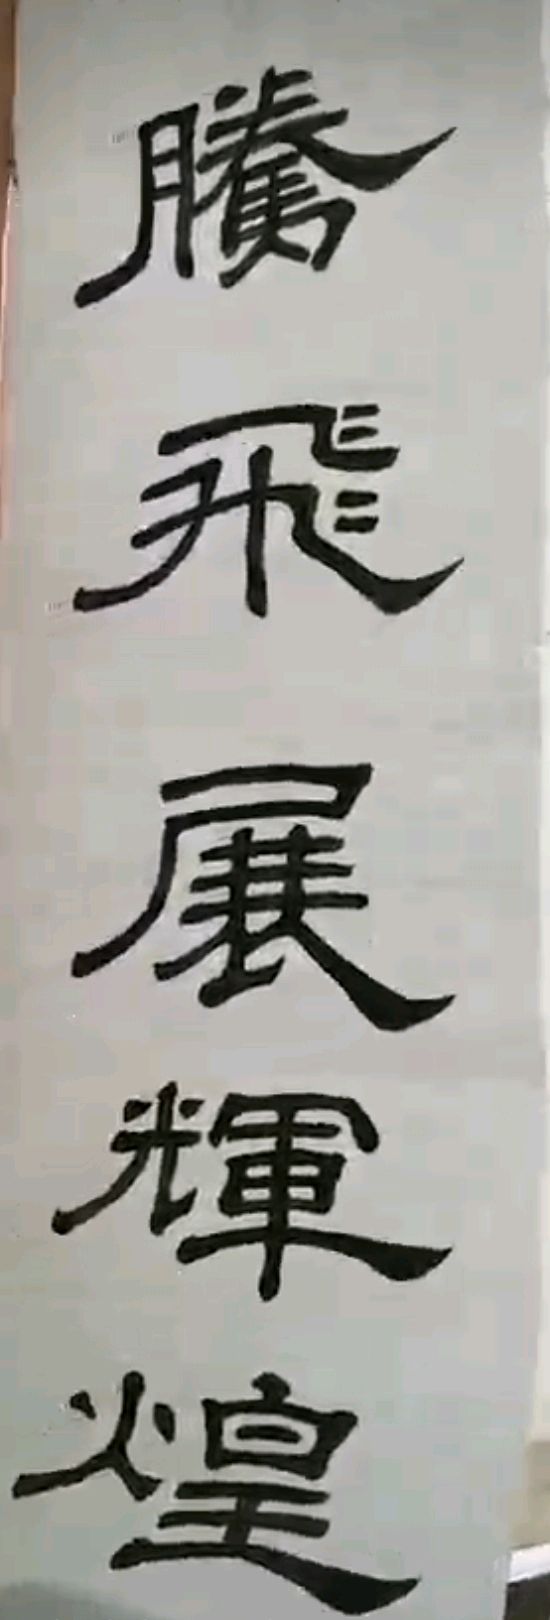 騰飛展輝煌